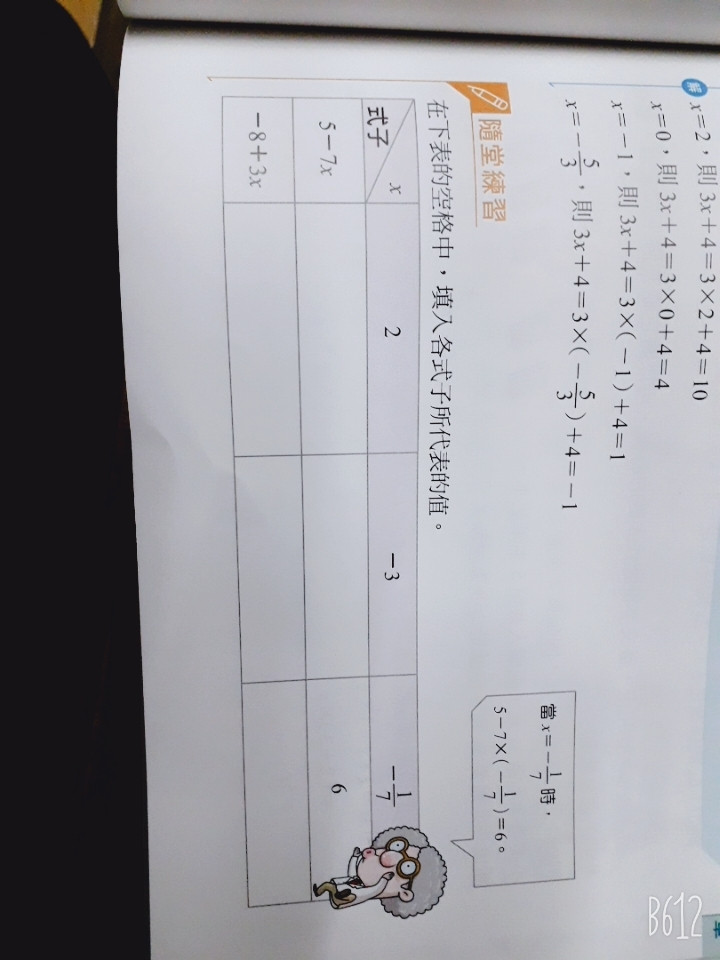 解 x=2，則 3x+4=3×2+4=10
x=0，則 3x+4=3×0+4=4
x=-1，則 3x+4=3×(-1)+4=1
x=-5/3，則 3x+4=3×(-5/3)+4=-1
隨堂練習
在下表的空格中，填入各式子所代表的值。
當 x=-1/7 時，
5-7×(-1/7)=6。
式子 x 2 -3 -1/7
5-7x 6
-8+3x
B612